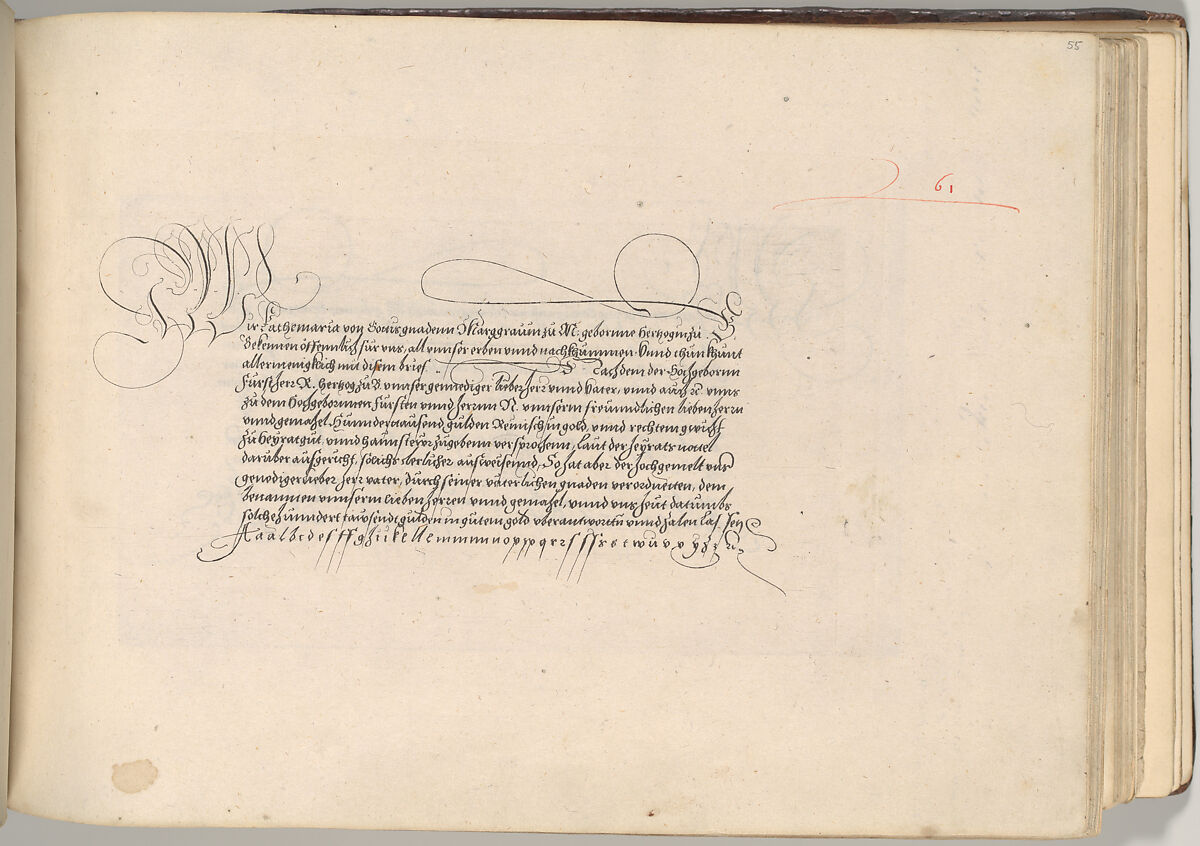 55
61
Wir Kathemaria von Gottes gnadenn Marggravin zu M: gebornne Hertzogin zu B
Bekennen öffennlich für uns, all unnser erben unnd nachkhummen. Unnd thun khunt
allermenigklich mit disem brief. Nachdem der Hochgebornn
Fürst herr N. Hertzog zu B. unnser genediger lieber herr unnd Vater, unnd auch unns
zu dem Hochgebornnen Fürsten unnd herrnn N. unnserm freunndlichen lieben herrn
unnd gemahel. Hunndert tausend gulden Reinisch in gold, unnd rechtem gwicht
zu Heyratgut, unnd haimsteyr zugebenn versprochenn, laut der heyrats nottel
darüber aufgericht, söllichs clerlicher ausweisennd, So hat aber der hochgemelt unser
genediger lieber herr vater, durch seiner väterlichen gnaden verordneten, dem
benannen unnserm lieben herren unnd gemahel, unnd uns heut datumbs
solche hunndert tausendt gulden in gutem gold uberantwortn unnd zalen las sen
A a a l b c d e f ff g h i i k e ll e m m m n o p p p q r r s ſ ſſ s s t w u v v y z z